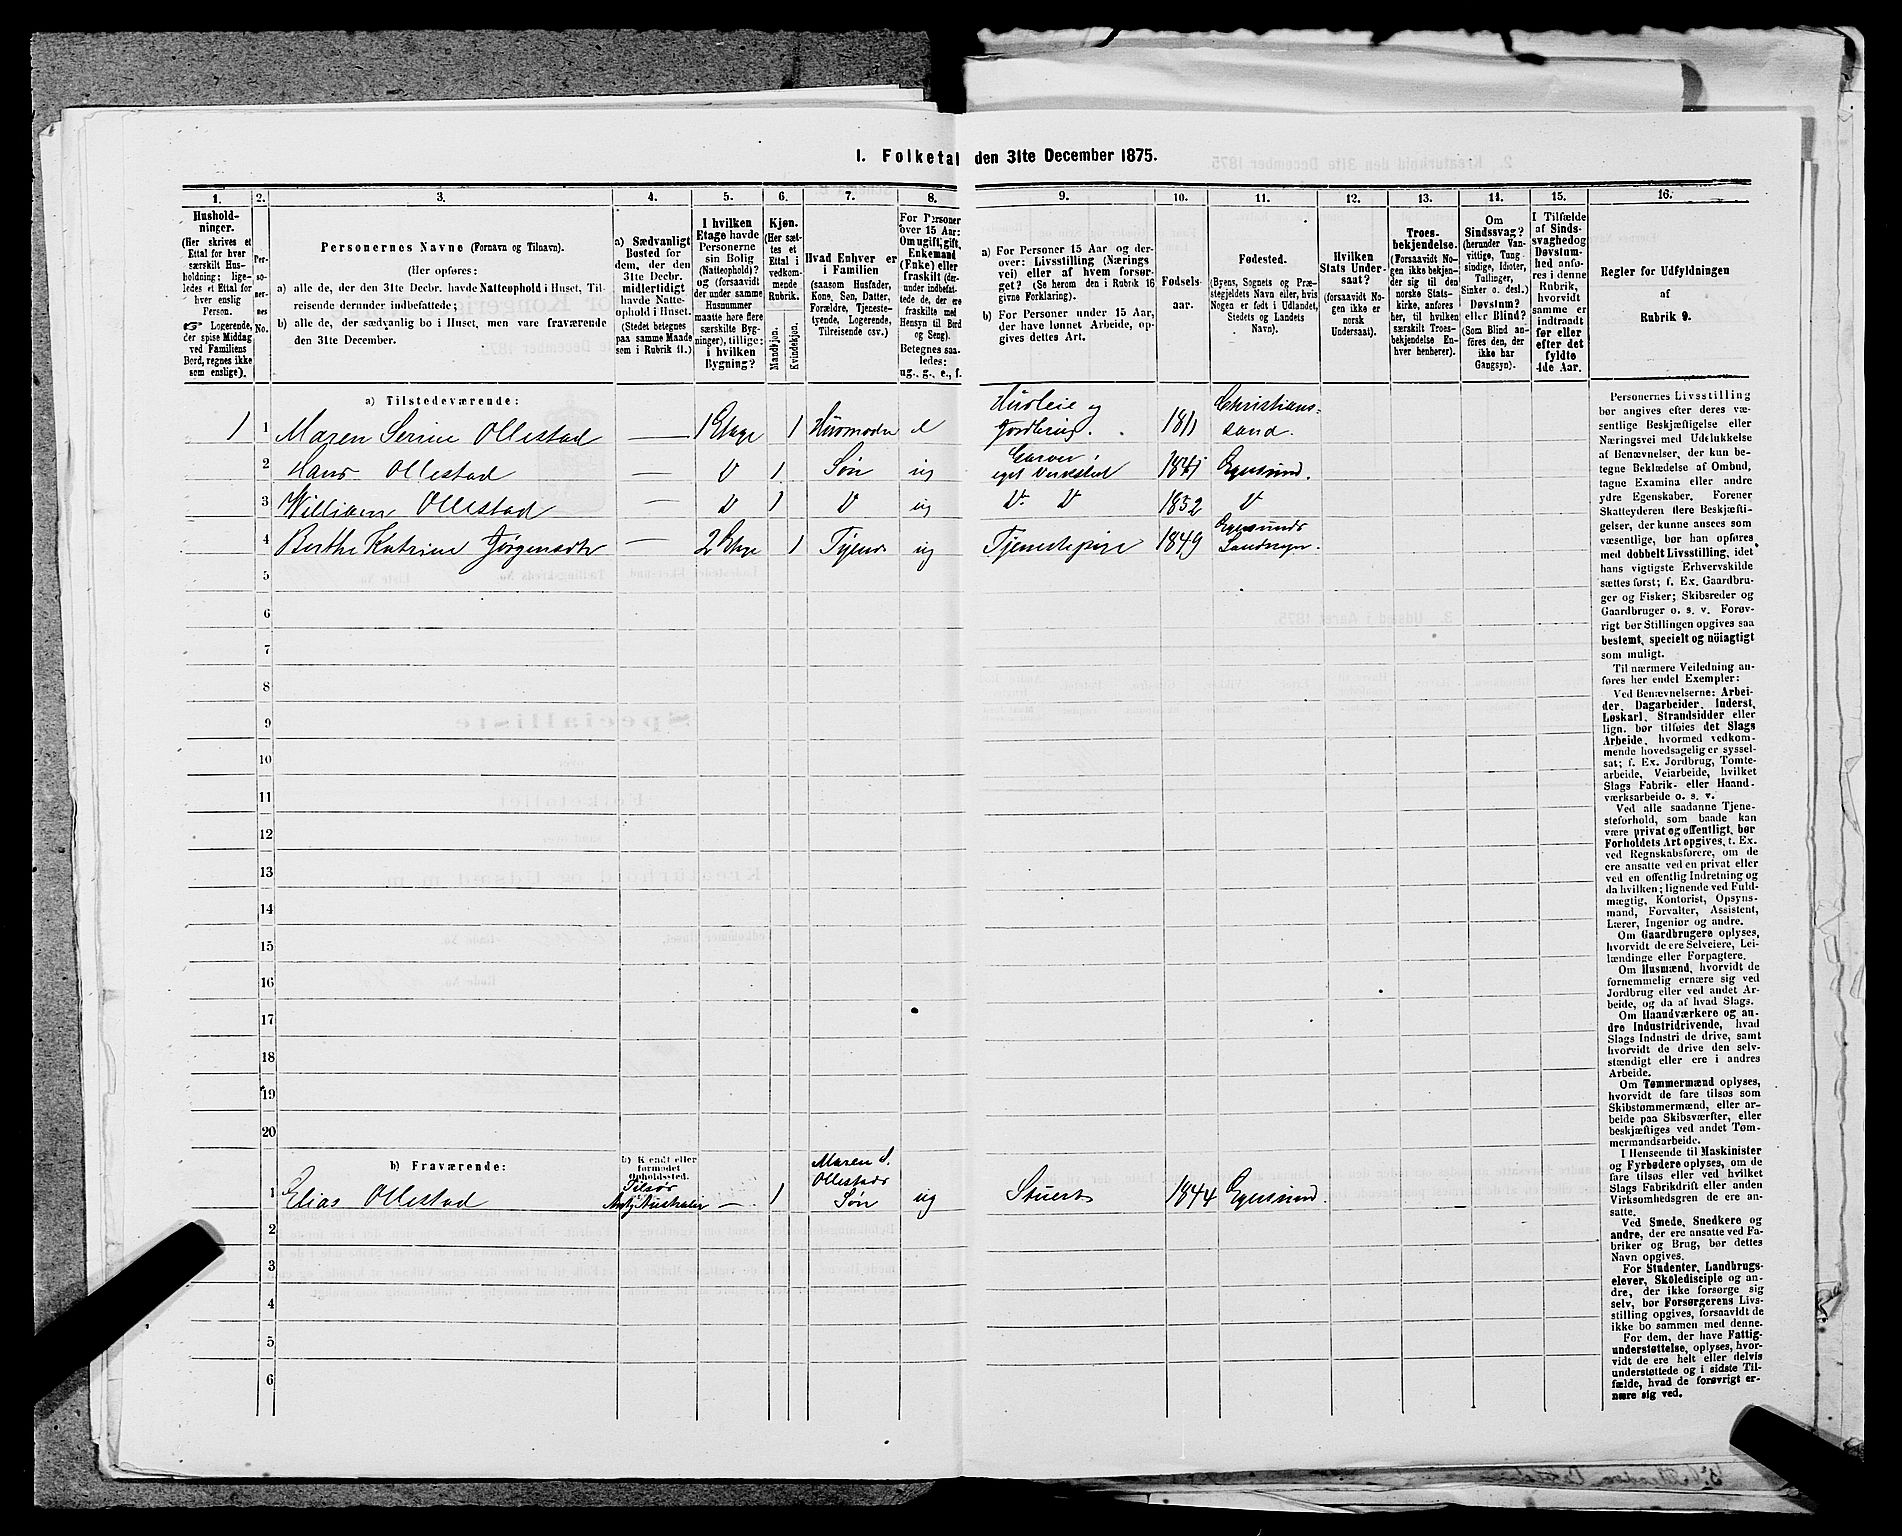 I. Folketal den 31te December 1875.
1.
2.
3.
4.
5.
6.
7.
8.
9.
10.
11.
12.
13.
14.
15.
16.
Hushold-
ninger.
(Her skrives et
Ettal for hver
særskilt Hus-
holdning; lige-
ledes et Ettal for
hver enslig
Person.
☞ Logerende,
der spise Middag
ved Familiens
Bord, regnes ikke
som enslige).
Per-
so-
ner-
nes
No.
Personernes Navne (Fornavn og Tilnavn).
(Her opføres:
a) alle de, der den 31te Decbr. havde Natteophold i Huset, Til-
reisende derunder indbefattede;
b) alle de, der sædvanlig bo i Huset, men vare fraværende
den 31te December.
a) Sædvanligt
Bosted for
dem, der den
31te Decbr.
midlertidigt
havde Natte-
ophold i Huset.
(Stedet betegnes
paa samme Maade
som i Rubrik 11.)
I hvilken
Etage havde
Personerne
sin Bolig
(Natteophold)?
og (forsaavidt
der under samme
Husnummer
maatte høre flere
særskilte Byg-
ninger), tillige:
i hvilken
Bygning?
Kjøn.
(Her sæt-
tes et
Ettal i
vedkom-
mende
Rubrik.
Mandkjøn.
Kvindekjøn.
Hvad Enhver er
i Familien
(saasom Husfader,
Kone, Søn, Datter,
Forældre, Tjeneste-
tyende, Logerende,
Tilreisende osv.)
For Personer
over 15 Aar:
Om ugift, gift,
Enkemand
(Enke) eller
fraskilt (der-
under indbefat-
tede de, der ere
fraskilte med
Hensyn til Bord
og Seng).
Betegnes saa-
ledes:
ug., g., e., f.
a) For Personer 15 Aar og der-
over: Livsstilling (Nærings
vei) eller af hvem forsør-
get? (Se herom den i Rubrik 16
givne Forklaring).
b) For Personer under 15 Aar,
der have lønnet Arbeide, op-
gives dettes Art.
Fødsels-
aar.
Fødested.
(Byens, Sognets og Præ-
stegjeldets Navn eller, hvis
Nogen er født i Udlandet,
Stedets og Landets
Navn).
Hvilken
Stats Under-
saat?
(forsaavidt No-
gen ikke er
norsk
Undersaat).
Troes-
bekjendelse.
(Forsaavidt No-
gen ikke bekjen-
der sig til den
norske Stats-
kirke, anføres
her, til hvilken
særskilt Troes-
bekjendelse En-
hver henhører).
Om
Sindssvag?
(herunder Van-
vittige, Tung
sindige, Idioter,
Tullinger,
Sinker o. desl.)
Døvstum?
eller Blind?
(Som Blind an-
føres den, der
ikke har
Gangsyn).
I Tilfælde
af Sinds-
svaghed og
Døvstum-
hed anfø-
res i denne
Rubrik,
hvorvidt
samme er
indtraadt
før eller
efter det
fyldte
4de Aar.
Regler for Udfyldningen
af
Rubrik 9.
a) Tilstedeværende:
1 1 Maren Serine Ollestad — 1 Etage 1 Husmoder e Husleie og Jordbrug. 1811 Christians= sand.
2 Hans Ollestad — " 1 Søn ug Garver, eget Verksted 1841 Egersund.
3 William Ollestad — " 1 " ug " " 1852 "
4 Berthe Katrine Jørgensdtr — 2 Etage 1 Tyende ug Tjenestepige 1849 Egersunds Landsogn.
5
6
7
8
9
10
11
12
13
14
15
16
17
18
19
20
b) Fraværende:
b) Kjendt eller
formodet
Opholdssted.
1 Elias Ollestad Tilsøs Australien — 1 Maren S. Ollestads Søn ug Stuert 1844 Egersund.
2
3
4
5
6
Personernes Livsstilling
bør angives efter deres væ-
sentlige Beskjæftigelse eller
Næringsvei med Udelukkelse
af Benævnelser, der kun be-
tegne Beklædelse af Ombud,
tagne Examina eller andre
ydre Egenskaber. Forener
Skatteyderen flere Beskjæfti-
gelser, der kunne ansees som
væsentlige, bør han opføres
med dobbelt Livsstilling, idet
hans vigtigste Erhvervskilde
sættes først; f. Ex. Gaardbru-
ger og Fisker; Skibsreder og
Gaardbruger o. s. v. Forøv-
rigt bør Stillingen opgives saa
bestemt, specielt og nöiagtigt
som muligt.
Til nærmere Veiledning an-
føres her endel Exempler:
Ved Benævnelserne: Arbei-
der, Dagarbeider, Inderst,
Løskarl, Strandsidder eller
lign. bør tilføies det Slags
Arbeide, hvormed vedkom-
mende hovedsagelig er syssel-
sat; f. Ex. Jordbrug, Tomte-
arbeide, Veiarbeide, hvilket
Slags Fabrik- eller Haand-
værksarbeide o. s. v.
Ved alle saadanne Tjene-
steforhold, som baade kan
være privat og offentligt, bør
Forholdets Art opgives, f. Ex.
ved Regnskabsførere, om de
ere ansatte ved en privat eller
ved en offentlig Indretning og
da hvilken; lignende ved Fuld-
mægtig, Kontorist, Opsyns-
mand, Forvalter, Assistent,
Lærer, Ingeniør og andre.
Om Gaardbrugere oplyses,
hvorvidt de ere Selveiere, Lei-
lændinge eller Forpagtere.
Om Husmænd, hvorvidt de
fornemmelig ernære sig ved
Jordbrug eller ved andet Ar-
beide, og da af hvad Slags.
Om Haandværkere og an-
dre Industridrivende, hvad
Slags Industri de drive, samt
hvorvidt de drive den selv-
stændigt eller ere i andres
Arbeide.
Om Tømmermænd oplyses,
hvorvidt de fare tilsøs som
Skibstømmermænd, eller ar-
beide paa Skibsværfter, eller
beskjæftiges ved andet Tøm-
mermandsarbeide.
I Henseende til Maskinister
og Fyrbødere oplyses, om de
fare tilsøs eller ved hvilket
Slags Fabrikdrift eller anden
Virksomhedsgren de ere an-
satte.
Ved Smede, Snedkere og
andre, der ere ansatte ved Fa-
briker og Brug, bør dettes
Navn opgives.
For Studenter, Landbrugs-
elever, Skoledisciple og an-
dre, der ikke forsørge sig
selv, bør Forsørgerens Livs-
stilling opgives, forsaavidt de
ikke bo sammen med denne.
For dem, der have Fattig-
understøttelse, oplyses, hvor-
vidt de ere helt eller delvis
understøttede og i sidste Til-
fælde, hvad de forøvrigt er-
nære sig ved.